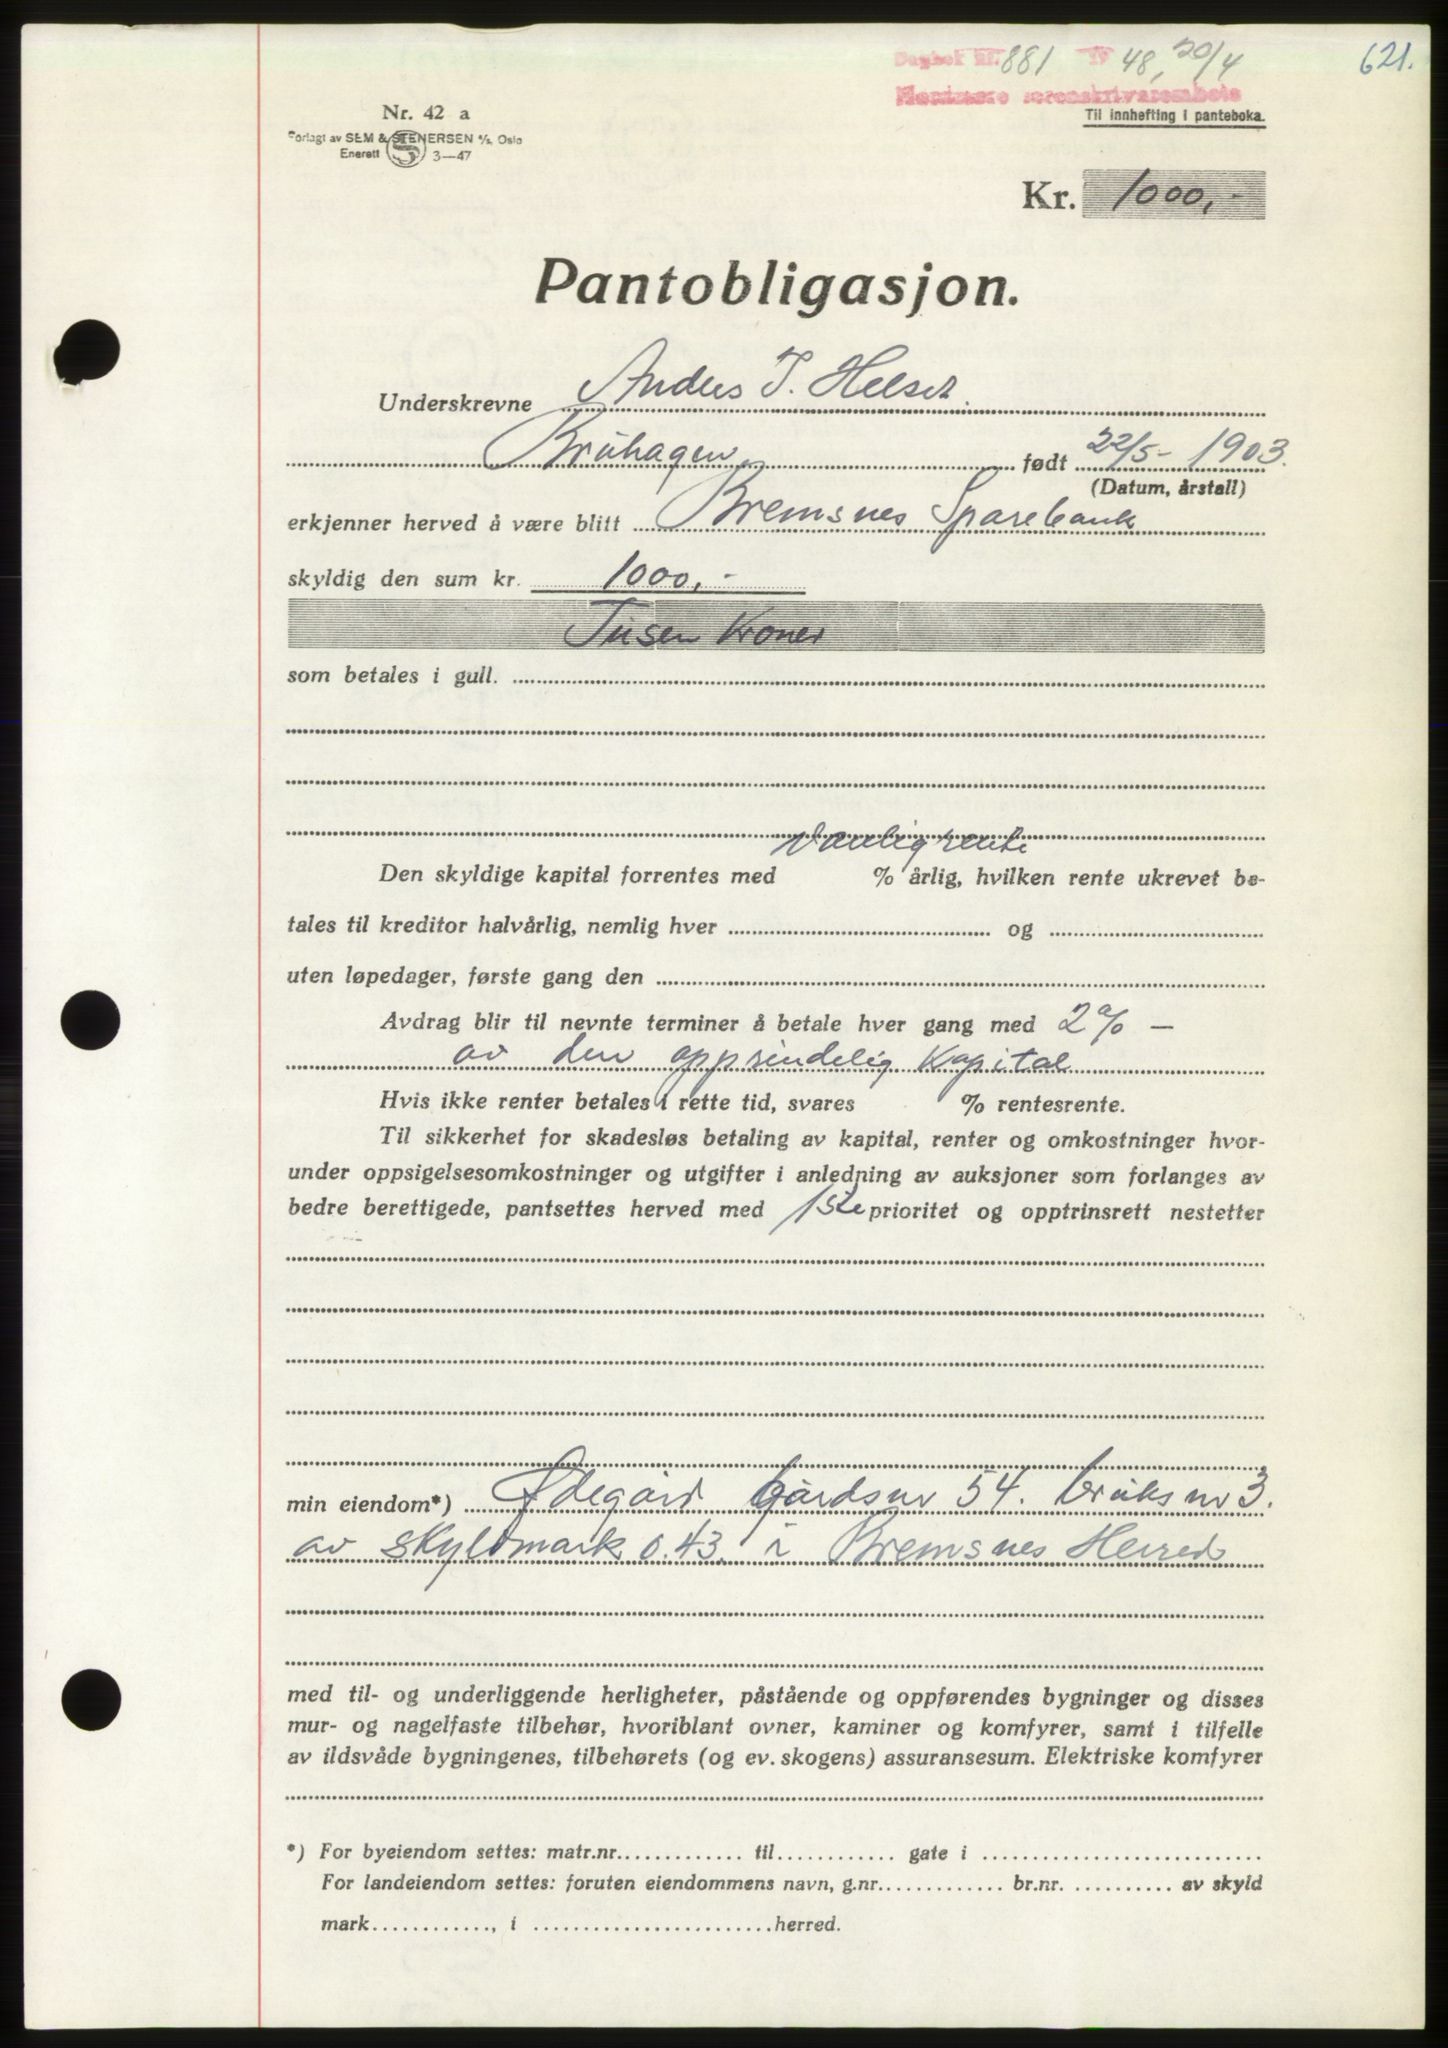 Dagbok nr. 881 1948, 20/4
621.
Nordmøre sorenskriverembete
Til innhefting i panteboka.
Nr. 42 a
Forlagt av SEM & STENERSEN A/S, Oslo
Enerett S 3—47
Kr. 1000,-
Pantobligasjon.
Underskrevne Anders T. Helset.
Bruhagen, født 22/5- 1903.
(Datum, årstall)
erkjenner herved å være blitt Bremsnes Sparebank
skyldig den sum kr. 1000,-
Tusen Kroner
som betales i gull.
vanlig rente
Den skyldige kapital forrentes med % årlig, hvilken rente ukrevet be-
tales til kreditor halvårlig, nemlig hver og
uten løpedager, første gang den
Avdrag blir til nevnte terminer å betale hver gang med 2% —
av den oppsindelig Kapital
Hvis ikke renter betales i rette tid, svares % rentesrente.
Til sikkerhet for skadesløs betaling av kapital, renter og omkostninger hvor-
under oppsigelsesomkostninger og utgifter i anledning av auksjoner som forlanges av
bedre berettigede, pantsettes herved med 1ste prioritet og opptrinsrett nestetter
min eiendom*) Ødegård Gårdsnr 54. bruksnr 3.
av skyldmark 0.43. i Bremsnes Herred
med til- og underliggende herligheter, påstående og oppførendes bygninger og disses
mur- og nagelfaste tilbehør, hvoriblant ovner, kaminer og komfyrer, samt i tilfelle
av ildsvåde bygningenes, tilbehørets (og ev. skogens) assuransesum. Elektriske komfyrer
*) For byeiendom settes: matr.nr. til gate i
For landeiendom settes: foruten eiendommens navn, g.nr. br.nr. av skyld
mark , i herred.